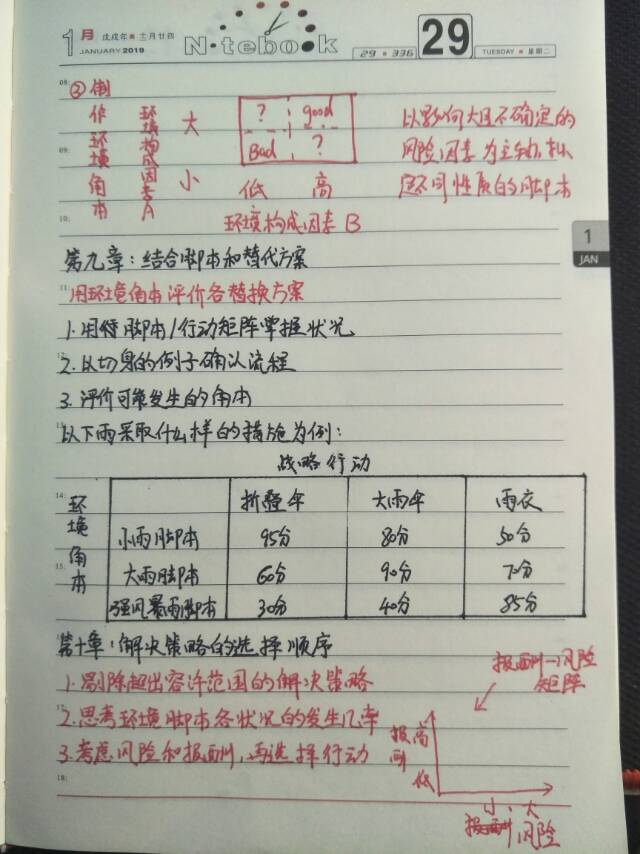 1月 戊戌年 十二月廿四
JANUARY 2019
N·tebook
29 336
29
TUESDAY 星期二
② 制作环境角本
环境构成因素A
大
小
? good
Bad ?
低 高
环境构成因素B
以影响大且不确定的
风险因素为主轴,拟
定不同性质的脚本
1
JAN
第九章:结合脚本和替代方案
用环境角本评价各替换方案
1.用脚本/行动矩阵掌握状况
2.以切身的例子确认流程
3.评价可能发生的角本
以下雨采取什么样的措施为例:
战略行动
环境角本
折叠伞 大雨伞 雨衣
小雨脚本 95分 80分 50分
大雨脚本 60分 90分 70分
强风暴雨脚本 30分 40分 85分
第十章:解决策略的选择顺序
1.剔除超出容许范围的解决策略
2.思考环境脚本各状况的发生几率
3.考虑风险和报酬,再选择行动
报酬—风险
矩阵
报酬
高
低
小 大
风险